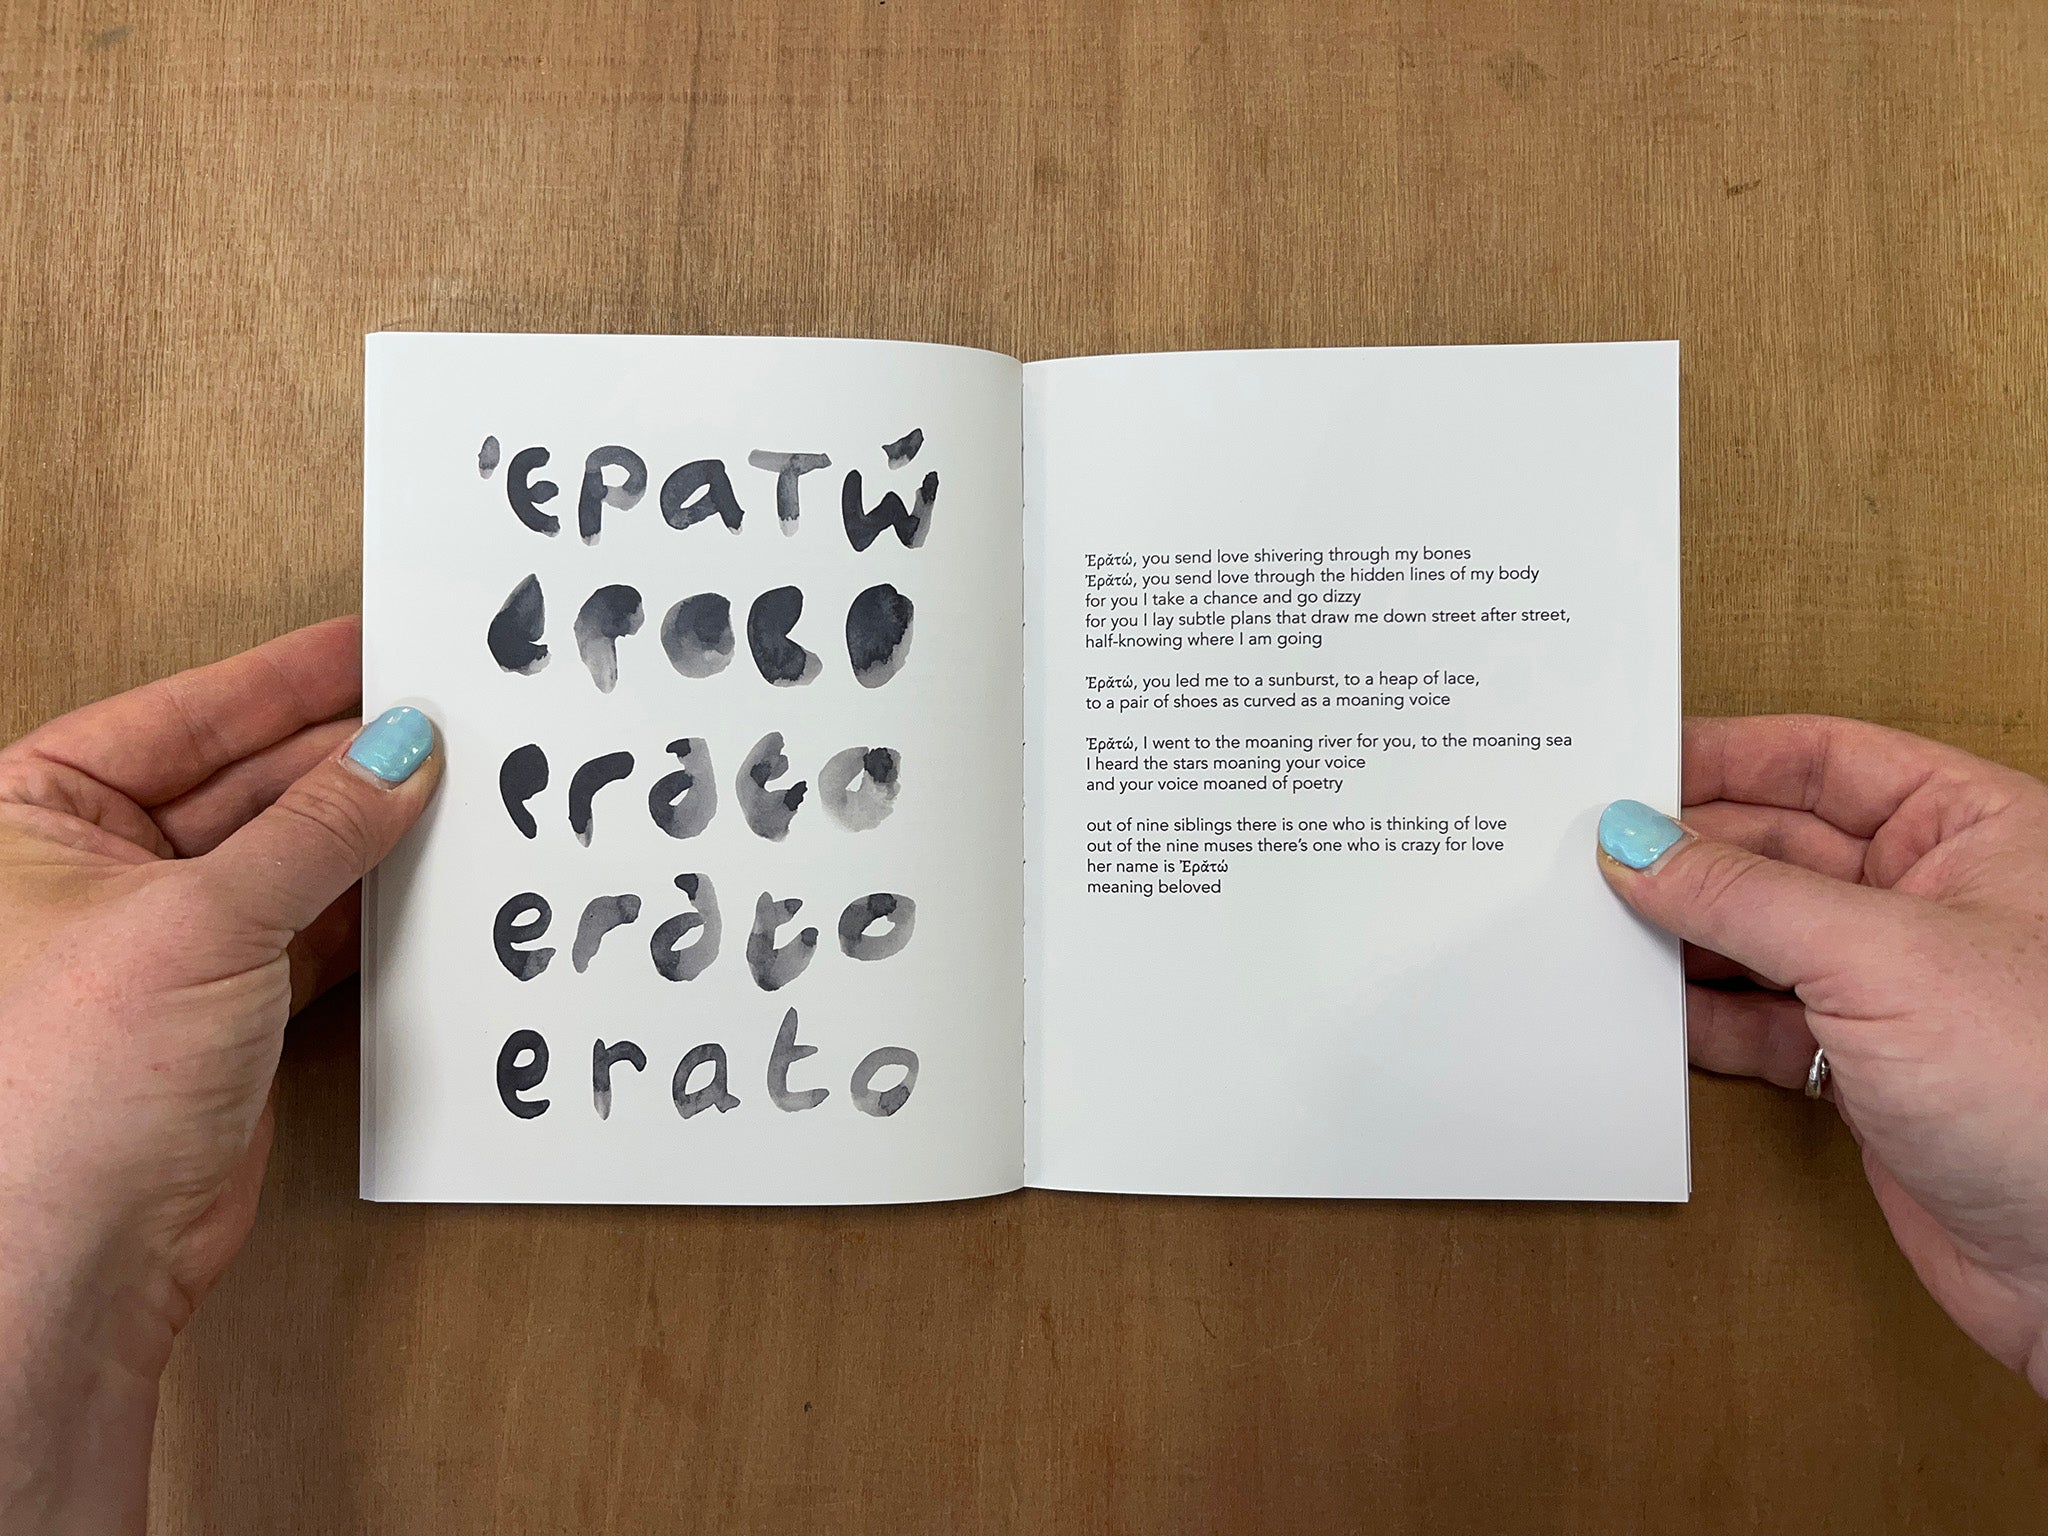 Ἐρατώ
erato
erato
erato
erato
Ἐρᾰτώ, you send love shivering through my bones
Ἐρᾰτώ, you send love through the hidden lines of my body
for you I take a chance and go dizzy
for you I lay subtle plans that draw me down street after street,
half-knowing where I am going
Ἐρᾰτώ, you led me to a sunburst, to a heap of lace,
to a pair of shoes as curved as a moaning voice
Ἐρᾰτώ, I went to the moaning river for you, to the moaning sea
I heard the stars moaning your voice
and your voice moaned of poetry
out of nine siblings there is one who is thinking of love
out of the nine muses there's one who is crazy for love
her name is Ἐρᾰτώ
meaning beloved